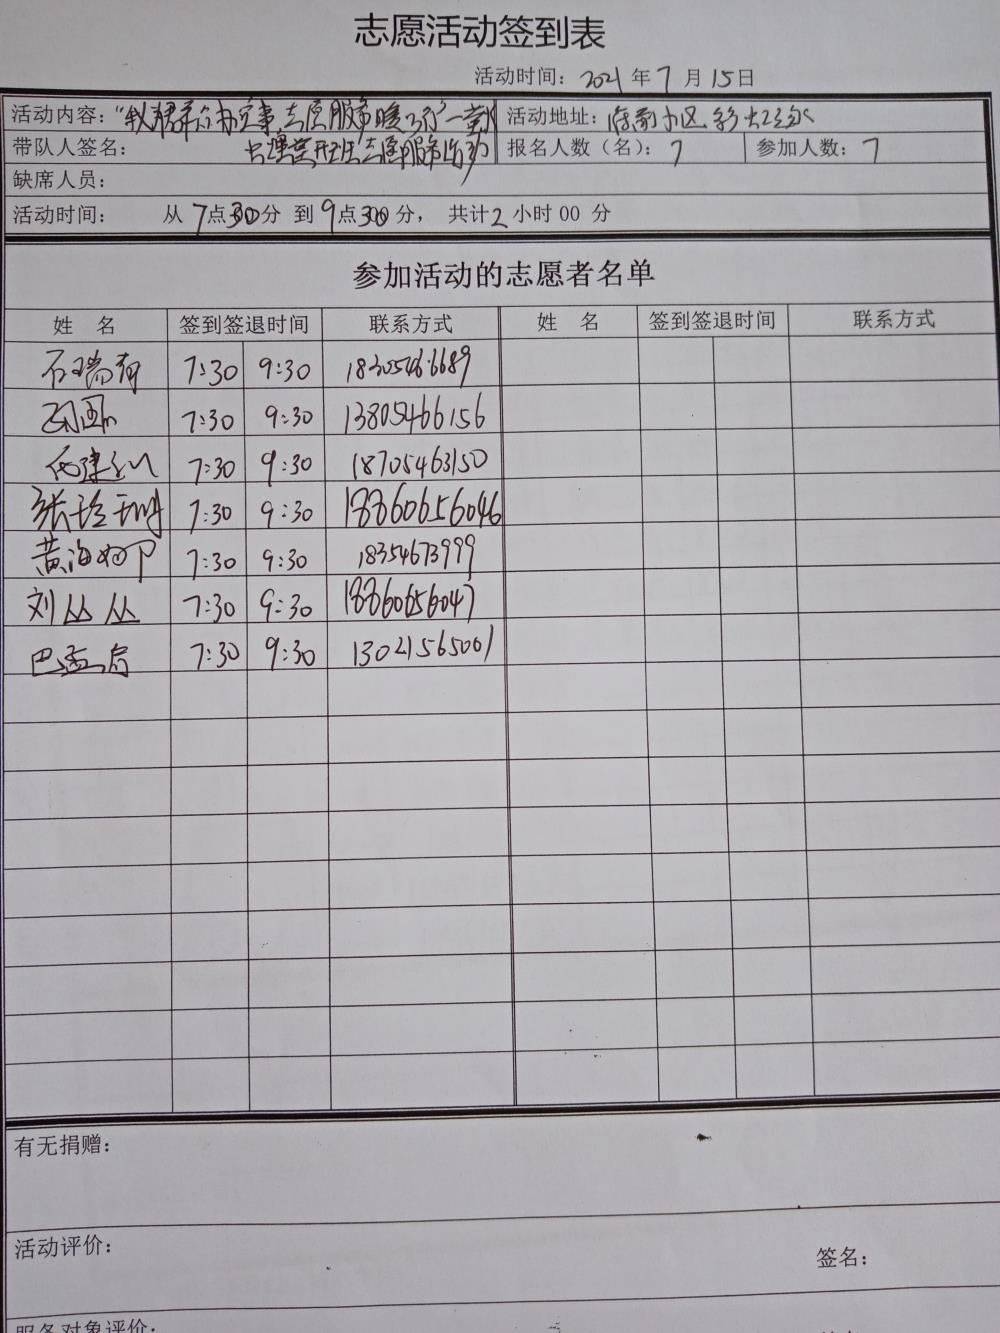 志愿活动签到表
活动时间：2021年7月15日
活动内容："我帮群众办实事 志愿服务暖万家"
活动地址：
带队人签名： 志愿服务活动
报名人数（名）：7 参加人数：7
缺席人员：
活动时间： 从7点30分 到9点30分， 共计2小时00分
参加活动的志愿者名单
姓名 签到签退时间 联系方式 姓名 签到签退时间 联系方式
石瑞 7:30 9:30 18305466689
7:30 9:30 13805466156
7:30 9:30 18705463150
张玲 7:30 9:30 18860656046
黄海 7:30 9:30 18354673999
刘丛丛 7:30 9:30 18860656047
巴 7:30 9:30 13021565001
有无捐赠：
活动评价：
签名：
服务对象评价：